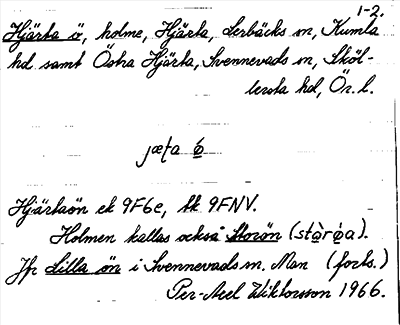 1-2.
Hjärta ö, holme, Hjärta, Lerbäcks sn, Kumla
hd samt Östra Hjärta, Svennevads sn, Sköl-
lersta hd, Ör. l.
jæta ǿ
Hjärtaön ek 9F6e, tk 9FNV.
Holmen kallas också Storön (stàrǿa).
Jfr Lilla ön i Svennevads sn. Man (forts.)
Per-Axel Wiktorsson 1966.